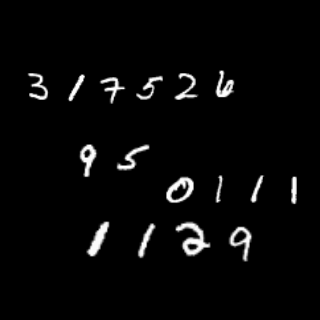 317526
95
0111
1129